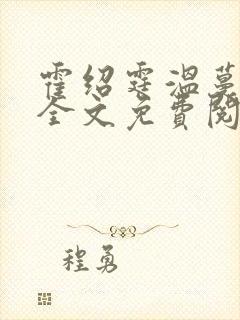 霍绍霆温蔓
全文免费阅
程勇